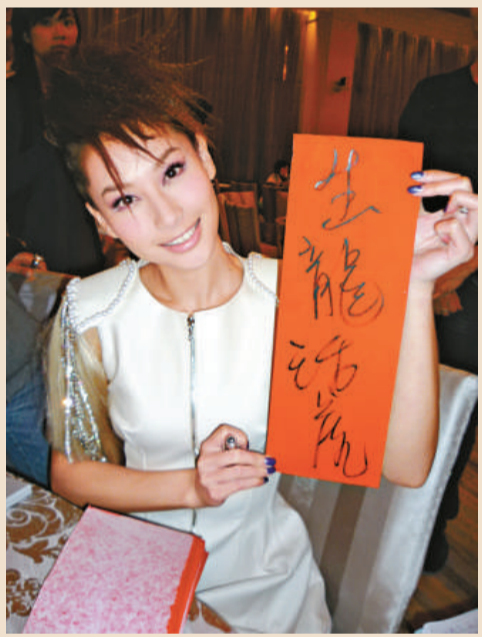 生龍活虎